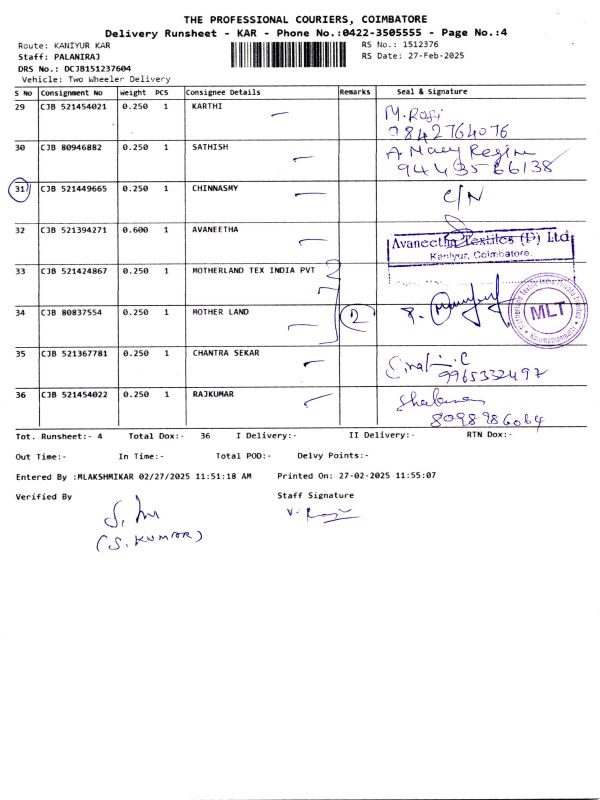 THE PROFESSIONAL COURIERS, COIMBATORE
Delivery Runsheet - KAR - Phone No.:0422-3505555 - Page No.:4
Route: KANIYUR KAR
RS No.: 1512376
Staff: PALANIRAJ
RS Date: 27-Feb-2025
DRS No.: DCJB151237604
Vehicle: Two Wheeler Delivery
S NO Consignment No Weight PCS Consignee Details Remarks Seal & Signature
29 CJB 521454021 0.250 1 KARTHI
9842764076
30 CJB 80946882 0.250 1 SATHISH
A Mary Regina
31 CJB 521449665 0.250 1 CHINNASMY C/N
32 CJB 521394271 0.600 1 AVANEETHA
Avaneetha Textiles (P) Ltd
Kaniyur, Coimbatore.
33 CJB 521424867 0.250 1 MOTHERLAND TEX INDIA PVT
34 CJB 80837554 0.250 1 MOTHER LAND 2
MLT
35 CJB 521367781 0.250 1 CHANTRA SEKAR
9965332497
36 CJB 521454022 0.250 1 RAJKUMAR
8098986064
Tot. Runsheet:- 4 Total Dox:- 36 I Delivery:- II Delivery:- RTN Dox:-
Out Time:- In Time:- Total POD:- Delvy Points:-
Entered By :MLAKSHMIKAR 02/27/2025 11:51:18 AM Printed On: 27-02-2025 11:55:07
Verified By Staff Signature
(S. KUMAR)